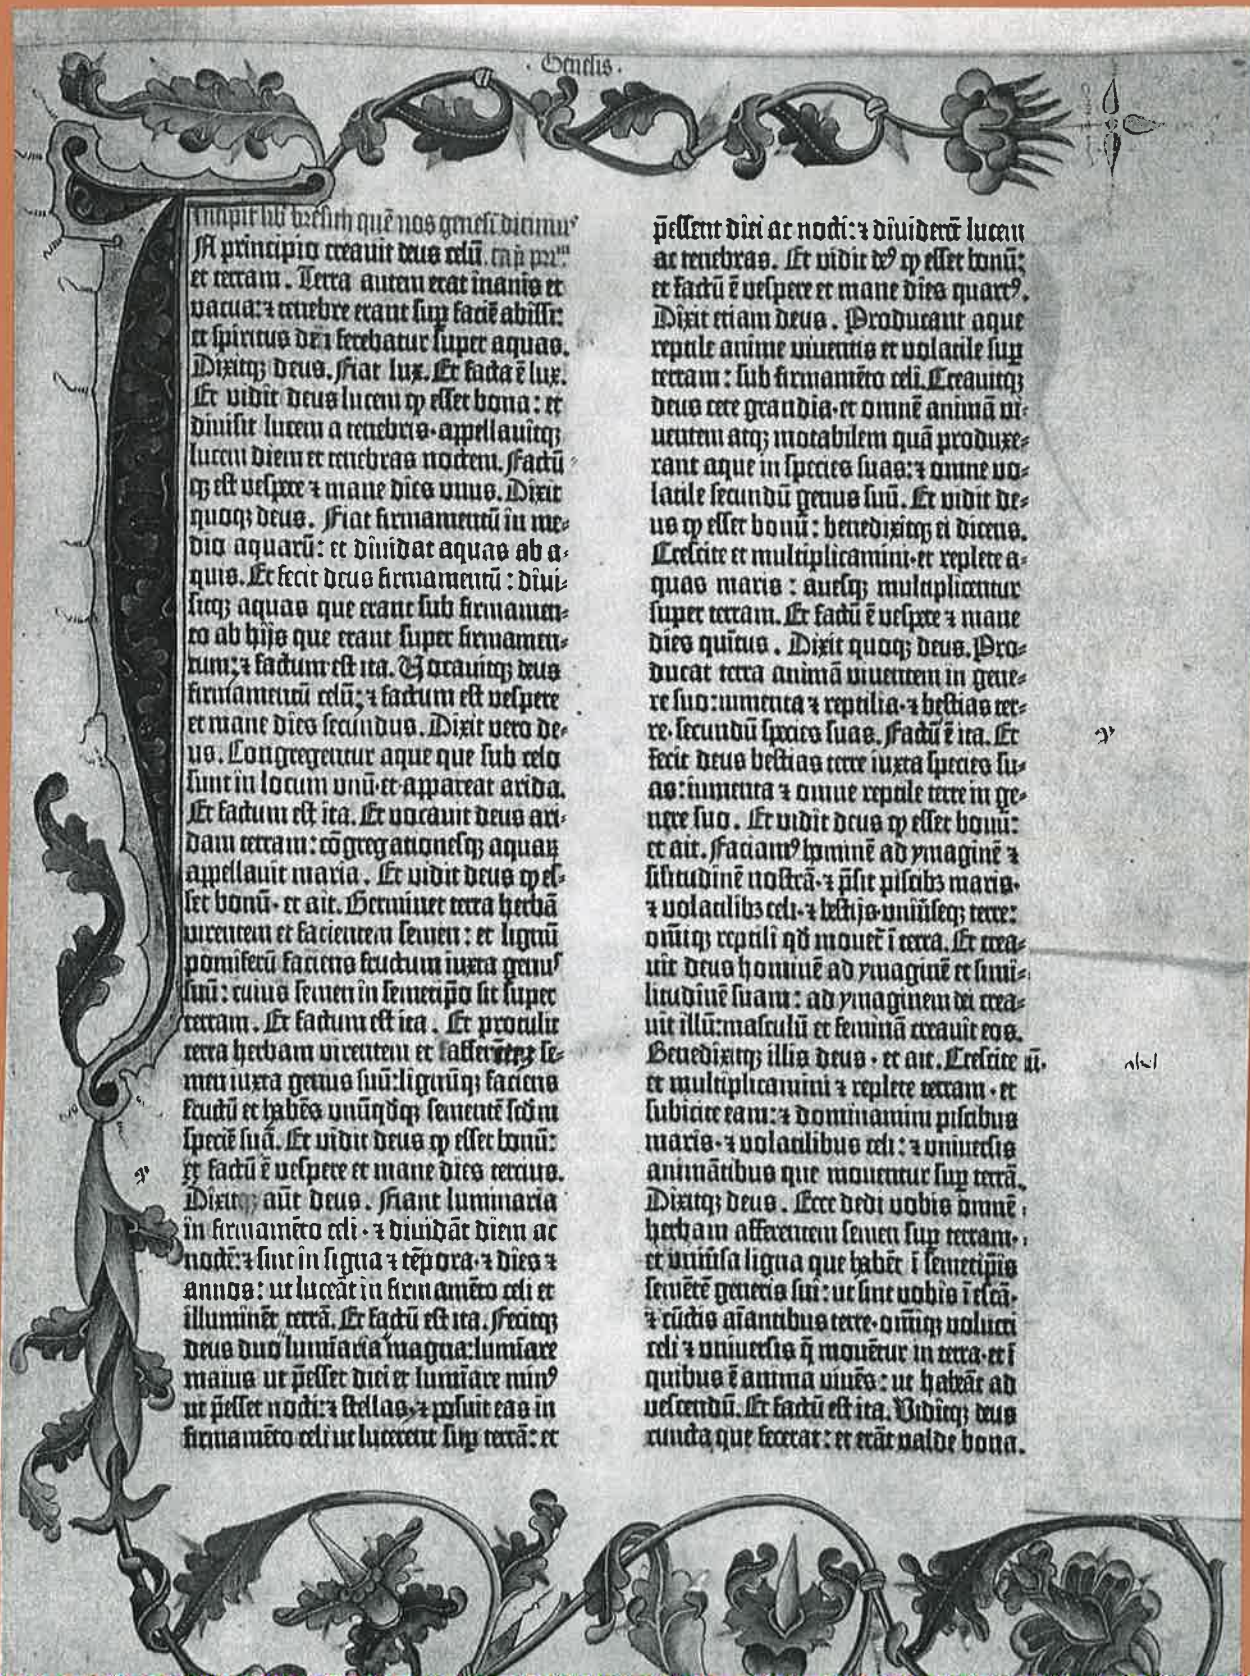 · Genesis ·
Incipit lib̃ bresith quē nos genesī dicimus
A principio creauit deus celū cap̃ prĩm
et terram. Terra autem erat inanis et
vacua: ⁊ tenebre erant sup faciē abissi:
et spiritus dei ferebatur super aquas.
Dixitq; deus. Fiat lux. Et facta ē lux.
Et vidit deus lucem ꝙ esset bona: et
diuisit lucem a tenebris·appellauitq;
lucem diem et tenebras noctem. Factū
q; est vespere ⁊ mane dies vnus. Dixit
quoq; deus. Fiat firmamentū in me-
dio aquarū: et diuidat aquas ab a-
quis. Et fecit deus firmamentū: diui-
sitq; aquas que erant sub firmamen-
to ab hijs que erant super firmamen-
tum: ⁊ factum est ita. Vocauitq; deus
firmamentū celū: ⁊ factum est vespere
et mane dies secundus. Dixit vero de-
us. Congregentur aque que sub celo
sunt in locum vnū·et appareat arida.
Et factum est ita. Et vocauit deus ari-
dam terram: cōgregationesq; aquaꝝ
appellauit maria. Et vidit deus ꝙ es-
set bonū· et ait. Germinet terra herbā
virentem et facientem semen: et lignū
pomiferū faciens fructum iuxta genus
suū: cuius semen in semetip̄o sit super
terram. Et factum est ita. Et protulit
terra herbam virentem et afferentē se-
men iuxta genus suū: lignūq; faciens
fructū et habēs vnūqdq; sementē scdm
speciē suā. Et vidit deus ꝙ esset bonū:
et factū ē vespere et mane dies tercius.
Dixitq; aūt deus. Fiant luminaria
in firmamēto celi· ⁊ diuidāt diem ac
noctē: ⁊ sint in signa ⁊ tēpora· ⁊ dies ⁊
annos: ut luceāt in firmamēto celi et
illuminēt terrā. Et factū est ita. Fecitq;
deus duo lumīaria magna: lumīare
maius ut p̄esset diei et lumīare minꝰ
ut p̄esset nocti: ⁊ stellas· ⁊ posuit eas in
firmamēto celi ut lucerent sup terrā: et
p̄essent diei ac nocti: ⁊ diuiderēt lucem
ac tenebras. Et vidit deꝰ ꝙ esset bonū:
et factū ē vespere et mane dies quartꝰ.
Dixit etiam deus. Producant aque
reptile anime viuentis et volatile sup
terram: sub firmamēto celi. Creauitq;
deus cete grandia· et omnē animā vi-
uentem atq; motabilem quā produxe-
rant aque in species suas: ⁊ omne vo-
latile secundū genus suū. Et vidit de-
us ꝙ esset bonū: benedixitq; ei dicens.
Crescite et multiplicamini· et replete a-
quas maris: auesq; multiplicentur
super terram. Et factū ē vespere ⁊ mane
dies quītus. Dixit quoq; deus. Pro-
ducat terra animā viuentem in gene-
re suo: iumenta ⁊ reptilia· ⁊ bestias ter-
re· secundū species suas. Factū ē ita. Et
fecit deus bestias terre iuxta species su-
as: iumenta ⁊ omne reptile terre in ge-
nere suo. Et vidit deus ꝙ esset bonū:
et ait. Faciamꝰ hominē ad ymaginē ⁊
sīlitudinē nostrā· ⁊ p̄sit piscibꝫ maris·
⁊ volatilibꝫ celi· ⁊ bestijs· vniūseq; terre:
omīq; reptili qd mouet ī terra. Et crea-
uit deus hominē ad ymaginē et simi-
litudinē suam: ad ymaginem dei crea-
uit illū: masculū et feminā creauit eos.
Benedixitq; illis deus· et ait. Crescite
et multiplicamini ⁊ replete terram· et
subicite eam: ⁊ dominamini piscibus
maris· ⁊ volatilibus celi: ⁊ vniuersis
animātibus que mouentur sup terrā.
Dixitq; deus. Ecce dedi vobis omnē
herbam afferentem semen sup terram·
et vniūsa ligna que habēt ī semetip̄is
semētē generis sui: ut sint vobis ī escā·
⁊ cūctis aīantibus terre· omīq; volucri
celi ⁊ vniuersis q̄ mouētur in terra· et ī
quibus ē anima viuēs: ut habeāt ad
vescendū. Et factū est ita. Viditq; deus
cuncta que fecerat: et erāt valde bona.